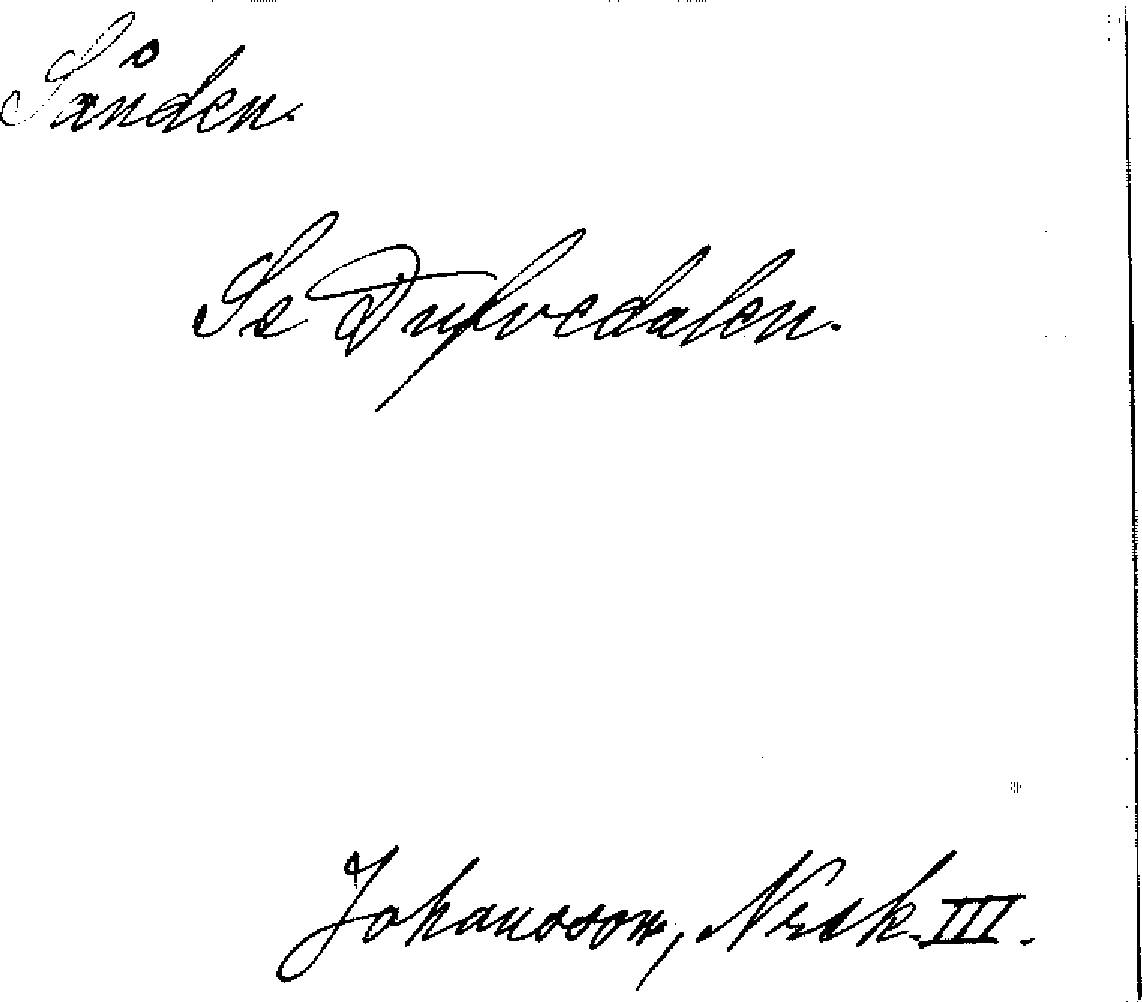 Sånden.
Se Dufvedalen.
Johansson, Nrsk. III.